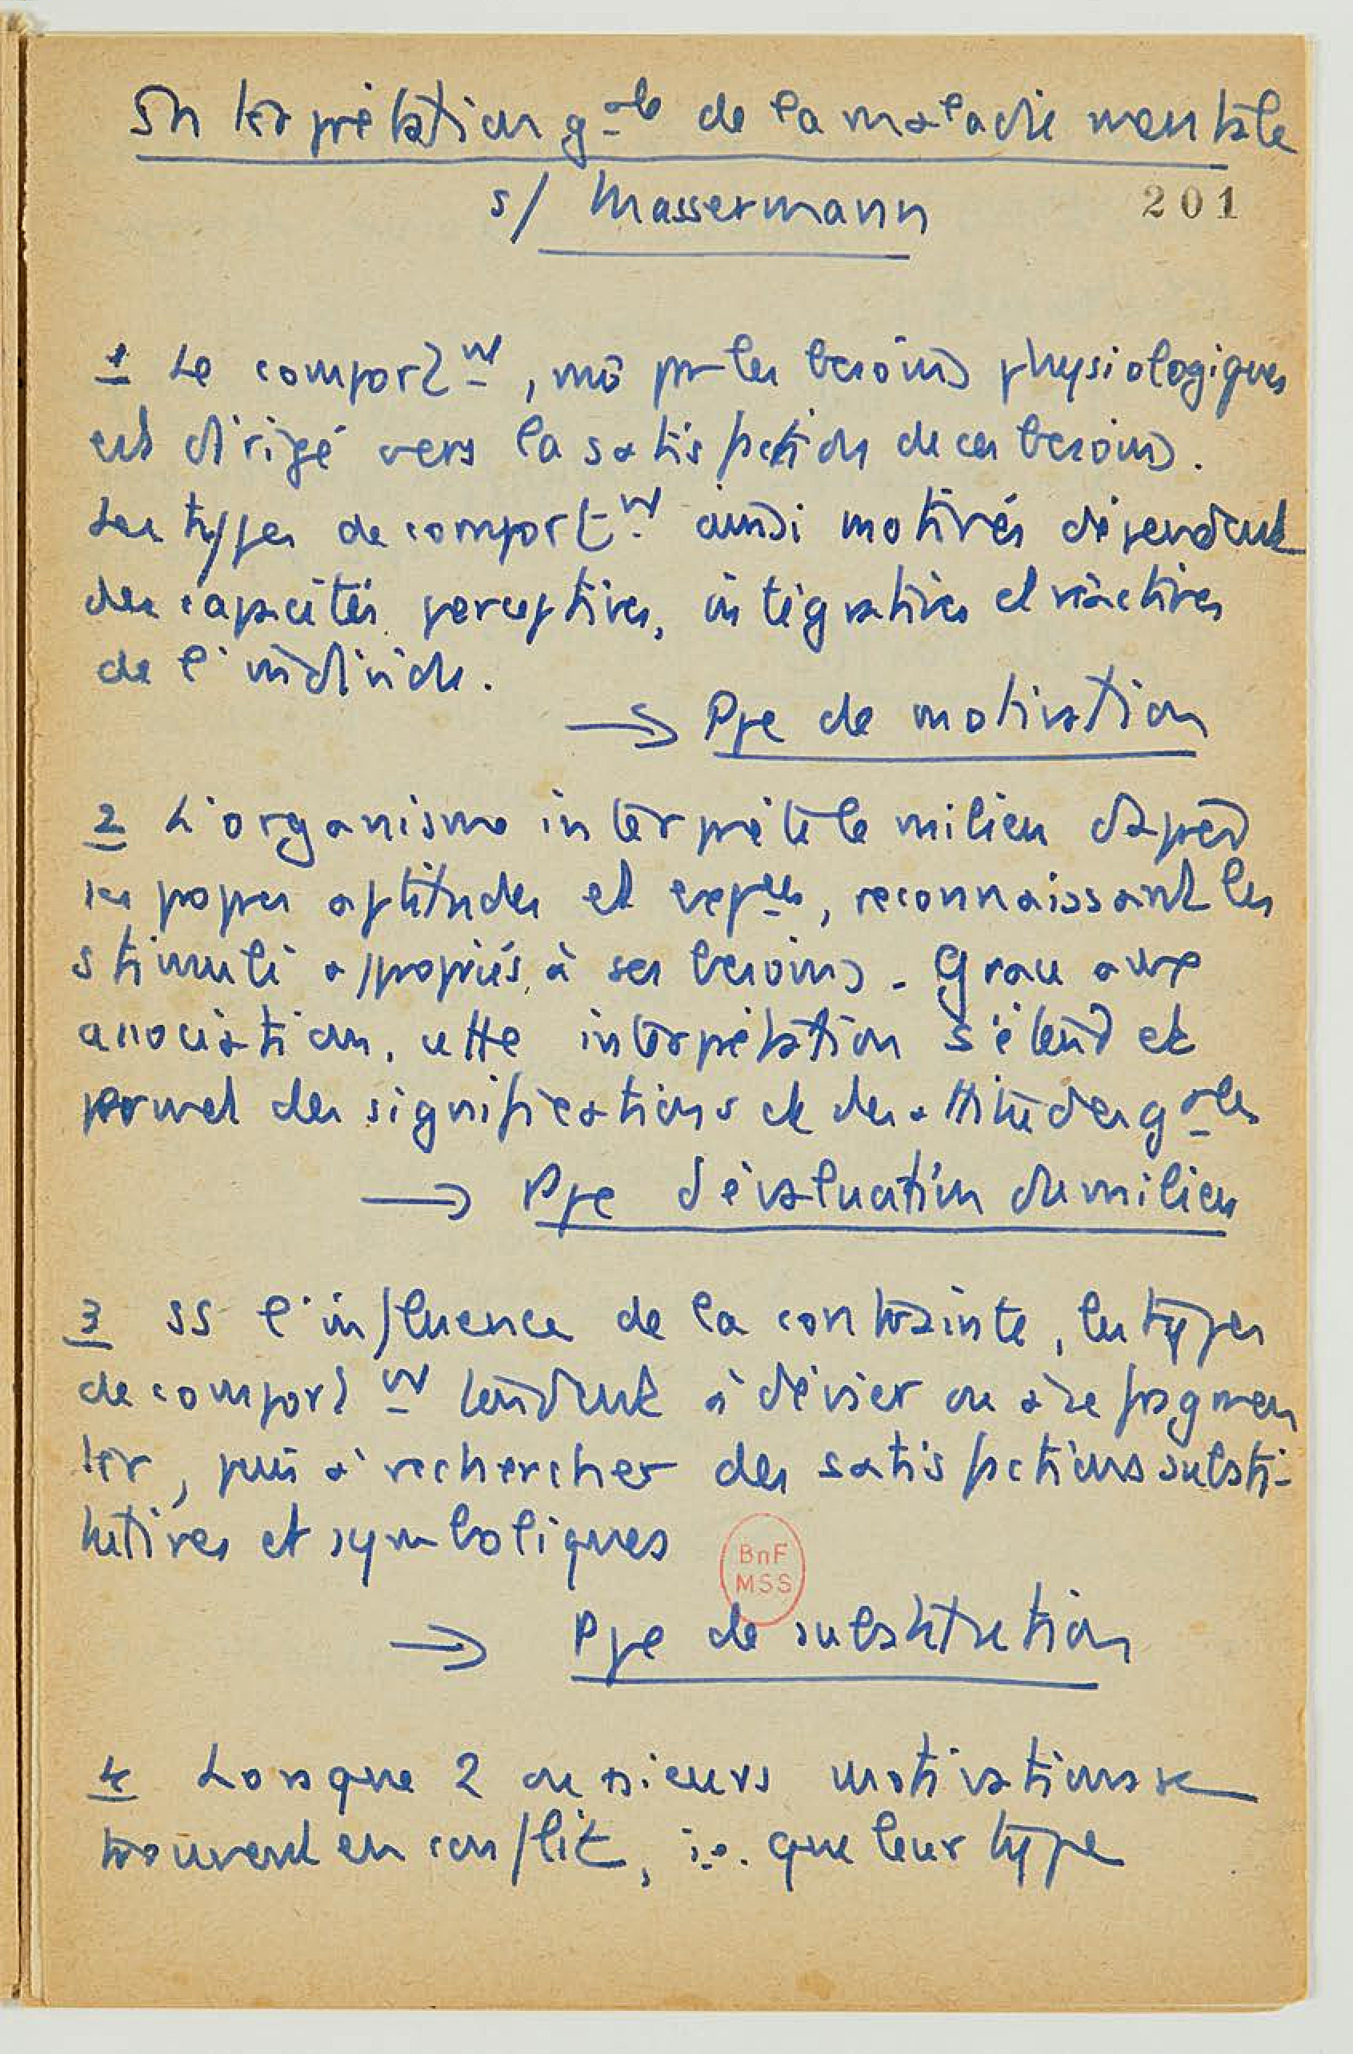 Interprétation gale de la maladie mentale
s/ Massermann
201
1 Le comportnt, mû par les besoins physiologiques
est dirigé vers la satisfaction de ces besoins.
Les types de comportnt ainsi motivés dépendent
des capacités perceptives, intégratives et réactives
de l'individu.
→ Ppe de motivation
2 L'organisme interprète le milieu d'après
ses propres aptitudes et expces, reconnaissant les
stimuli appropriés à ses besoins. Grace aux
associations, cette interprétation s'étend et
permet des significations et des attitudes gales
→ Ppe d'évaluation du milieu
3 SS l'influence de la contrainte, les types
de comportnt tendent à dévier ou à se fragmen
ter, puis à rechercher des satisfactions substi-
tutives et symboliques
BnF
MSS
→ Ppe de substitution
4 Lorsque 2 ou sieurs motivations se
trouvent en conflit, i.e. que leur type